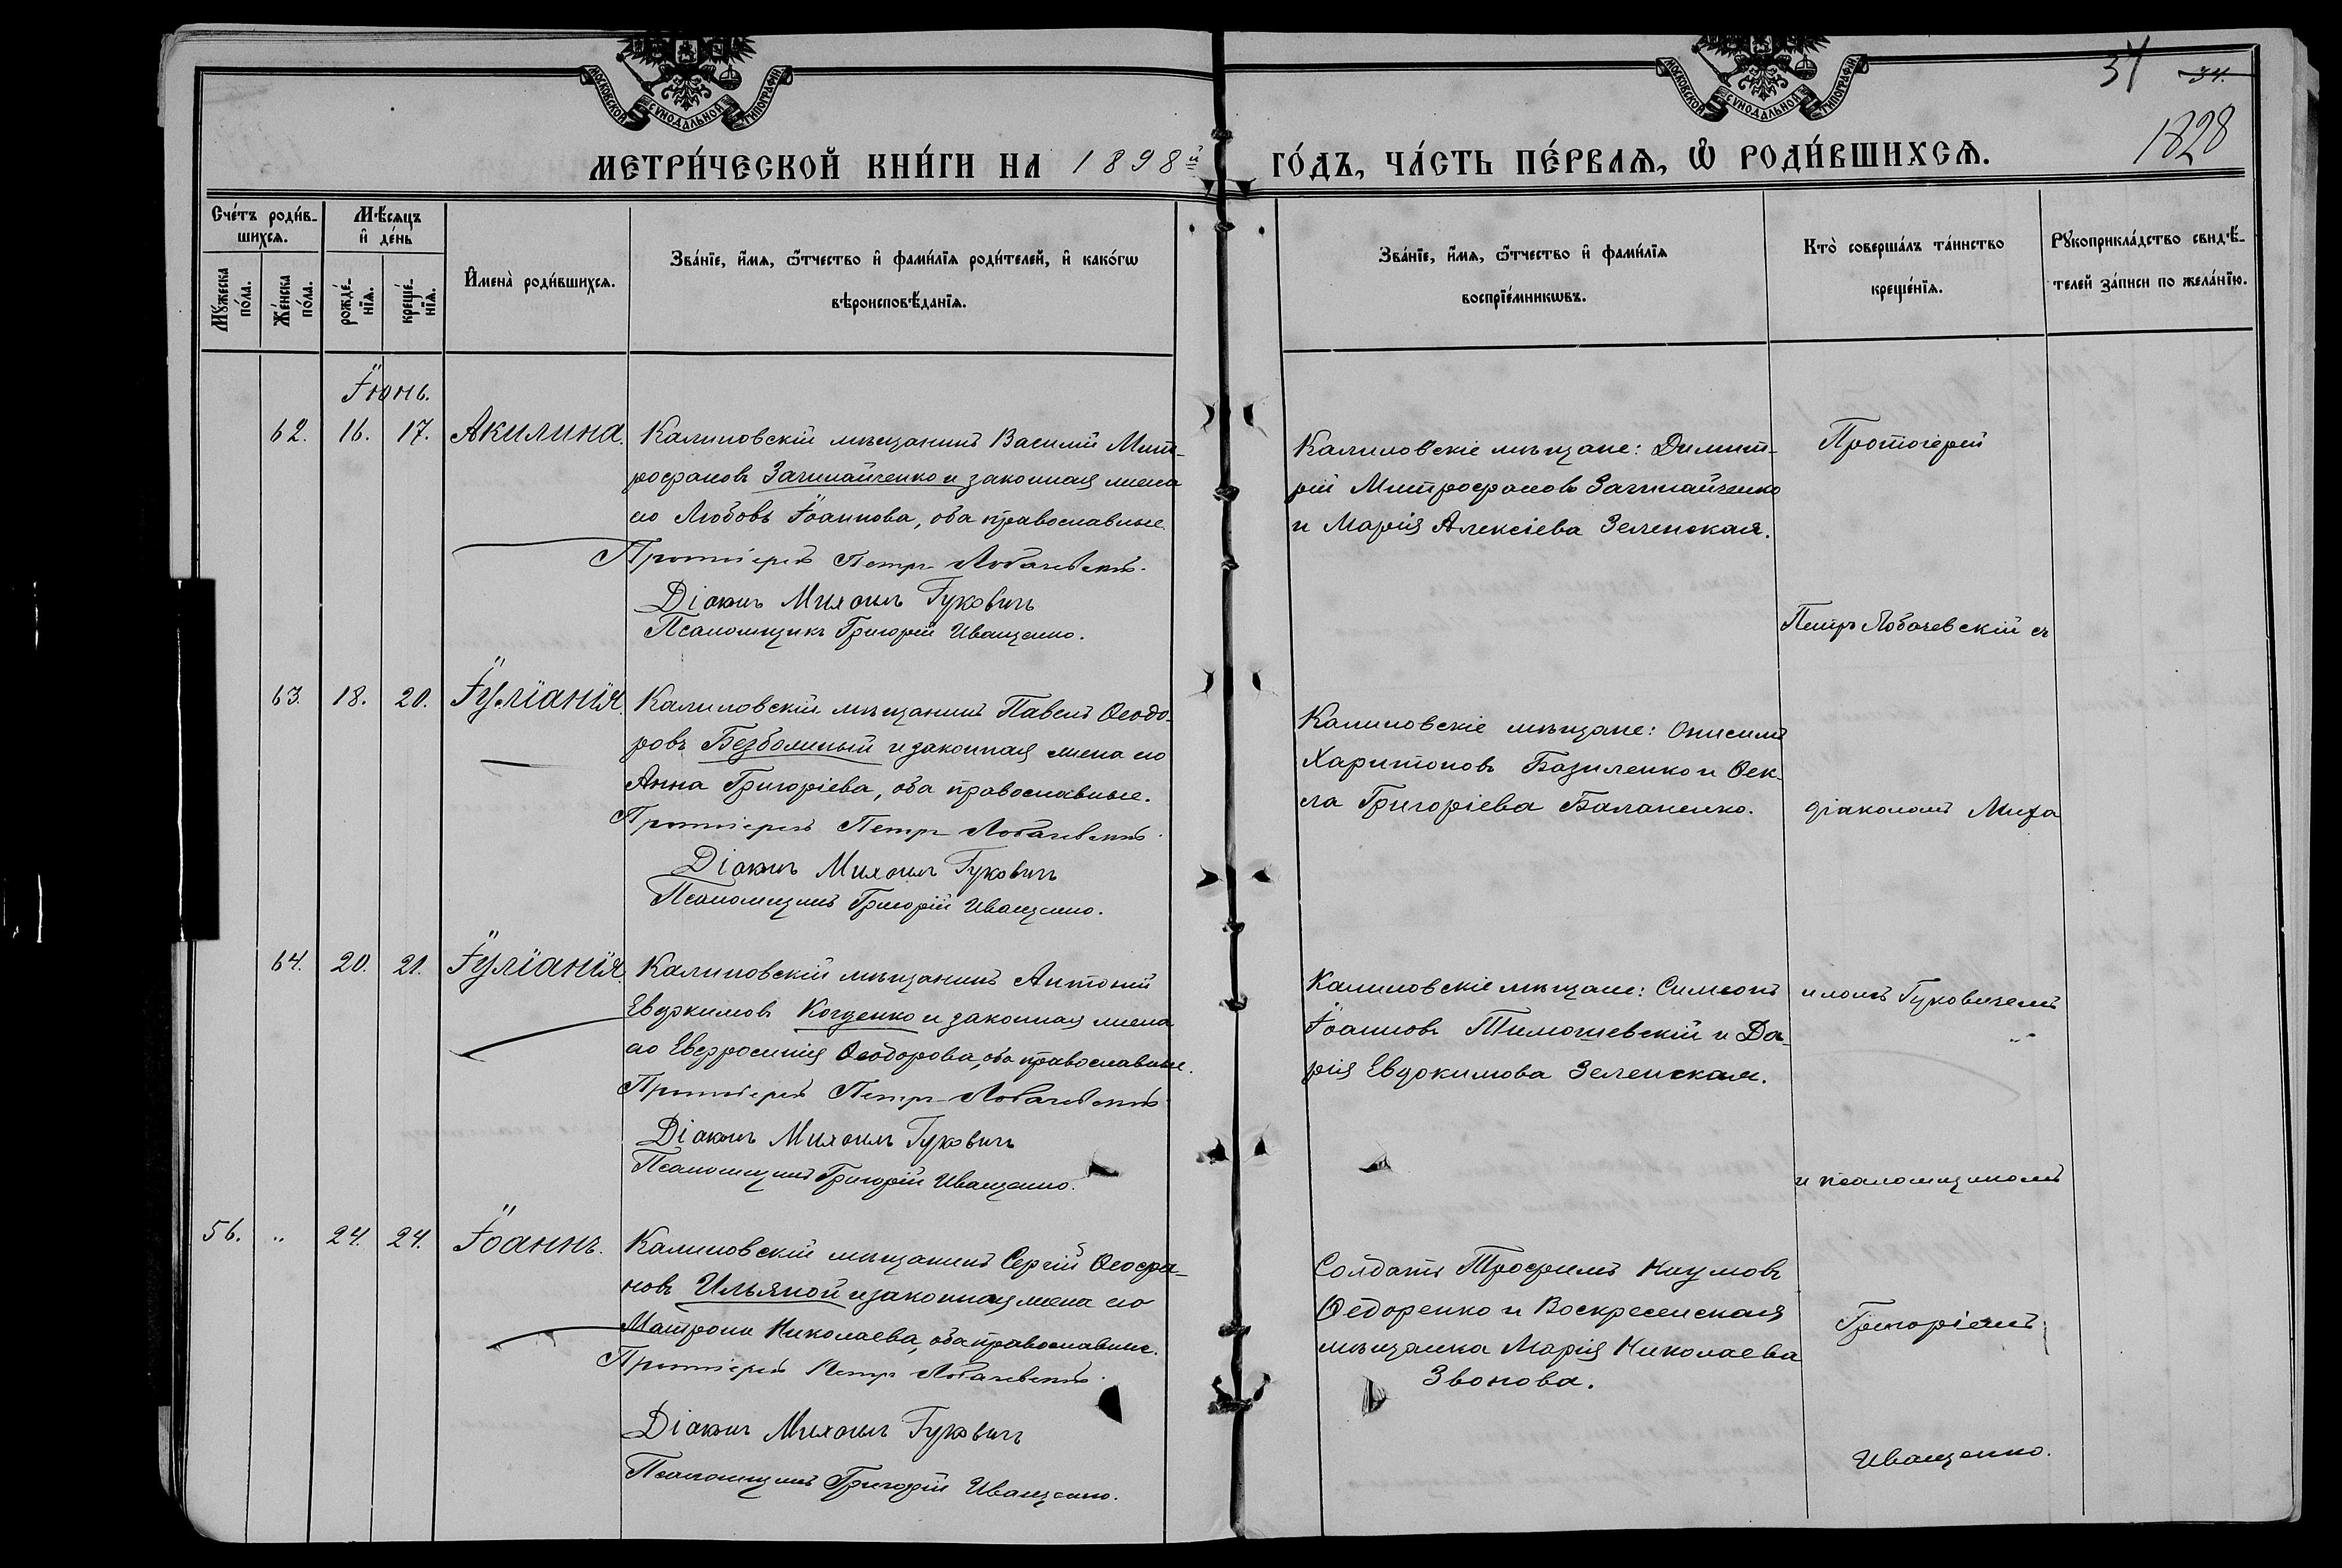 МОСКОВСКОЙ СѴНОДАЛЬНОЙ ТИПОГРАФІИ
МОСКОВСКОЙ СѴНОДАЛЬНОЙ ТИПОГРАФІИ
34 34.
1828
МЕТРИ́ЧЕСКОЙ КНИ́ГИ НА 1898й ГО́ДЪ, ЧА́СТЬ ПЕ́РВАѦ, Ѽ РОДИ́ВШИХСѦ.
Сче́тъ роди́в-
шихсѧ.
Мѣ́сѧцъ
и҆ де́нь
Мꙋ́жеска
по́ла.
Же́нска
по́ла.
рожде́-
нїѧ.
креще́-
нїѧ.
И҆мена̀ роди́вшихсѧ.
Зва́нїе, и҆́мѧ, ѻ҆́тчество и҆ фами́лїѧ роди́телей, и҆ како́гѡ
вѣроисповѣ́данїѧ.
Зва́нїе, и҆́мѧ, ѻ҆́тчество и҆ фами́лїѧ
воспрїе́мникѡвъ.
Кто̀ соверша́лъ та́инство
креще́нїѧ.
Рꙋкоприкла́дство свидѣ́-
телей за́писи по жела́нїю.
Іюнь.
62. 16. 17. Акилина.
Калиновскій мѣщанинъ Василій Мит-
рофановъ Зачинайченко и законная жена
его Любовь Іоаннова, оба православные.
Протоіерей Петръ Лобачевскій.
Діаконъ Михаилъ Гуковичъ
Псаломщикъ Григорій Иващенко.
Калиновскіе мѣщане: Димит-
рій Митрофановъ Зачинайченко
и Марія Алексіева Зеленская.
Протоіерей
Петръ Лобачевскій съ
63. 18. 20. Іуліанія.
Калиновскій мѣщанинъ Павелъ Ѳеодо-
ровъ Безболиный и законная жена его
Анна Григоріева, оба православные.
Протоіерей Петръ Лобачевскій.
Діаконъ Михаилъ Гуковичъ
Псаломщикъ Григорій Иващенко.
Калиновскіе мѣщане: Онисимъ
Харитоновъ Базиленко и Ѳек-
ла Григоріева Баланенко.
діакономъ Миха
64. 20. 21. Іуліанія.
Калиновскій мѣщанинъ Антоній
Евдокимовъ Когденко и законная жена
его Евфросинія Ѳеодорова, оба православные.
Протоіерей Петръ Лобачевскій
Діаконъ Михаилъ Гуковичъ
Псаломщикъ Григорій Иващенко.
Калиновскіе мѣщане: Симеонъ
Іоанновъ Тимошевскій и Да-
рія Евдокимова Зеленская.
иломъ Гуковичемъ
и псаломщикомъ
56. „ 24. 24. Іоаннъ.
Калиновскій мѣщанинъ Сергій Ѳеофа-
новъ Ильяной и законная жена его
Матрона Николаева, оба православные.
Протоіерей Петръ Лобачевскій.
Діаконъ Михаилъ Гуковичъ
Псаломщикъ Григорій Иващенко.
Солдатъ Трофимъ Наумовъ
Ѳедоренко и Воскресенская
мѣщанка Марія Николаева
Звонова.
Григоріемъ
Иващенко.